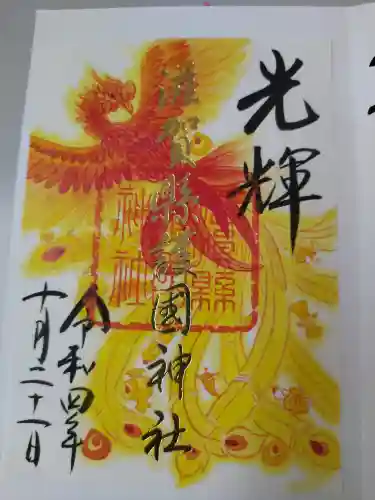 光輝
滋賀縣護国神社
令和四年
十月二十一日